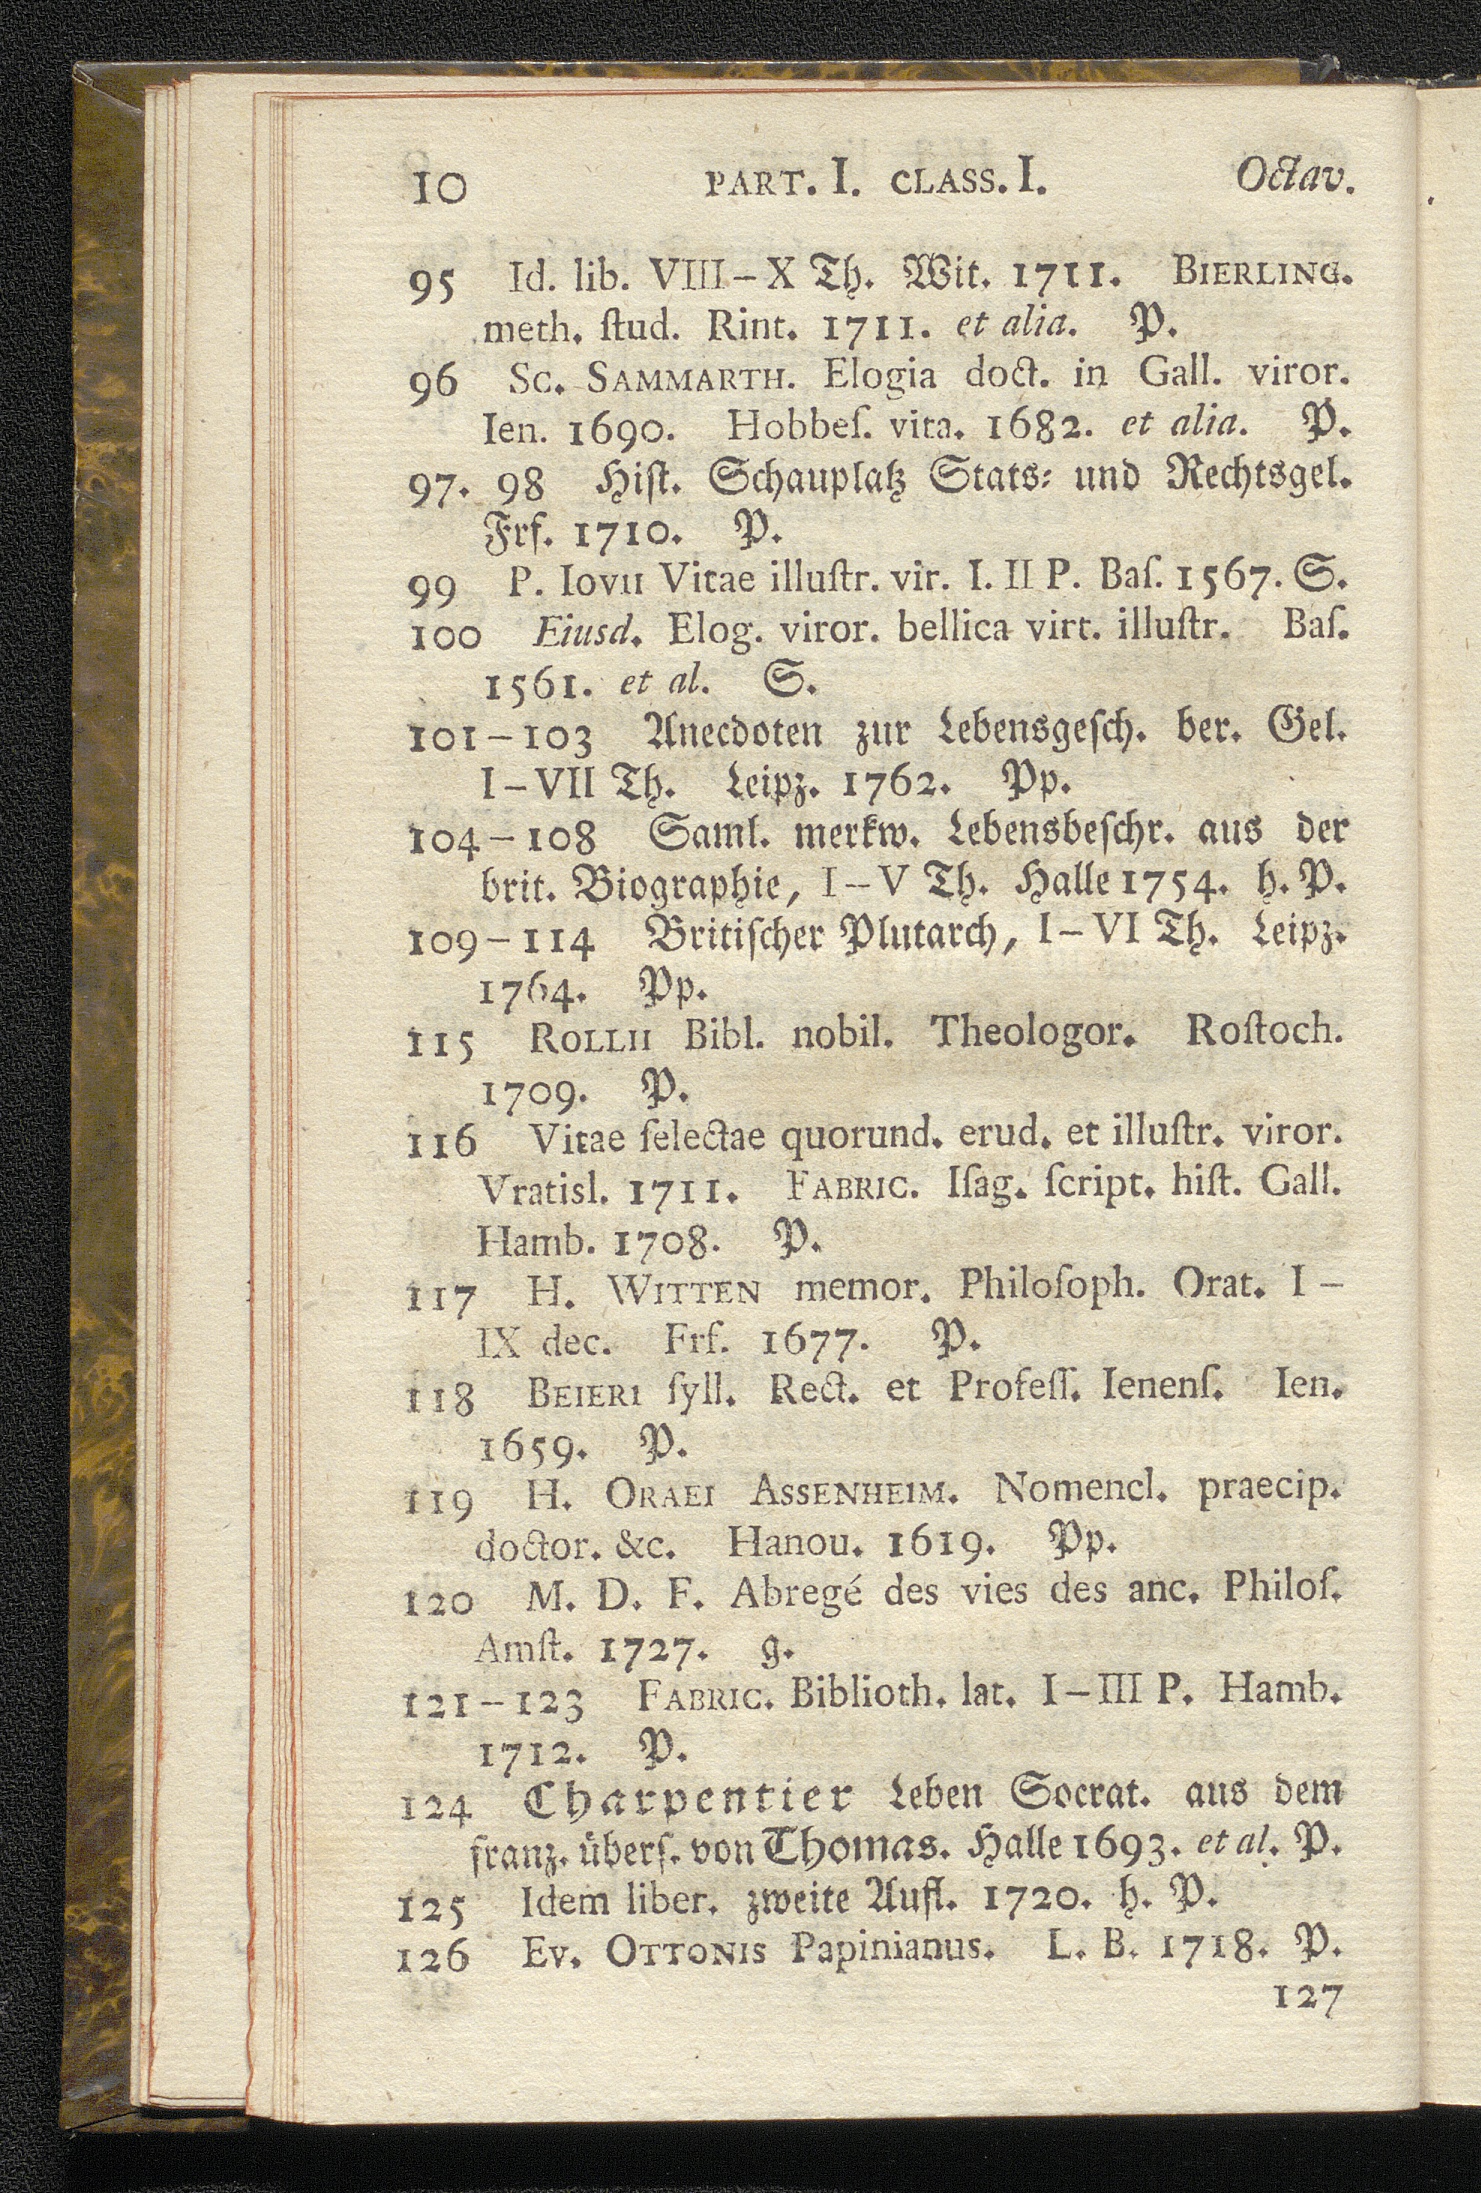 10 PART. I. CLASS. I. Octav.
95 Id. lib. VIII–X Th. Wit. 1711. BIERLING.
meth. ſtud. Rint. 1711. et alia. P.
96 SC. SAMMARTH. Elogia doct. in Gall. viror.
Ien. 1690. Hobbeſ. vita. 1682. et alia. P.
97. 98 Hiſt. Schauplatz Stats- und Rechtsgel.
Frf. 1710. P.
99 P. IOVII Vitae illuſtr. vir. I. II P. Baſ. 1567. S.
100 Eiusd. Elog. viror. bellica virt. illuſtr. Baſ.
1561. et al. S.
101–103 Anecdoten zur Lebensgeſch. ber. Gel.
I–VII Th. Leipz. 1762. Pp.
104–108 Saml. merkw. Lebensbeſchr. aus der
brit. Biographie, I–V Th. Halle 1754. h. P.
109–114 Britiſcher Plutarch, I–VI Th. Leipz.
1764. Pp.
115 ROLLII Bibl. nobil. Theologor. Roſtoch.
1709. P.
116 Vitae ſelectae quorund. erud. et illuſtr. viror.
Vratisl. 1711. FABRIC. Iſag. ſcript. hiſt. Gall.
Hamb. 1708. P.
117 H. WITTEN memor. Philoſoph. Orat. I –
IX dec. Frf. 1677. P.
118 BEIERI ſyll. Rect. et Profeſſ. Ienenſ. Ien.
1659. P.
119 H. ORAEI ASSENHEIM. Nomencl. praecip.
doctor. &c. Hanou. 1619. Pp.
120 M. D. F. Abregé des vies des anc. Philoſ.
Amſt. 1727. g.
121–123 FABRIC. Biblioth. lat. I–III P. Hamb.
1712. P.
124 Charpentier Leben Socrat. aus dem
franz. überſ. von Thomas. Halle 1693. et al. P.
125 Idem liber. zweite Aufl. 1720. h. P.
126 EV. OTTONIS Papinianus. L. B. 1718. P.
127